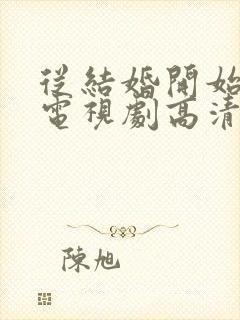 從結婚開始
電視劇高清
陳旭